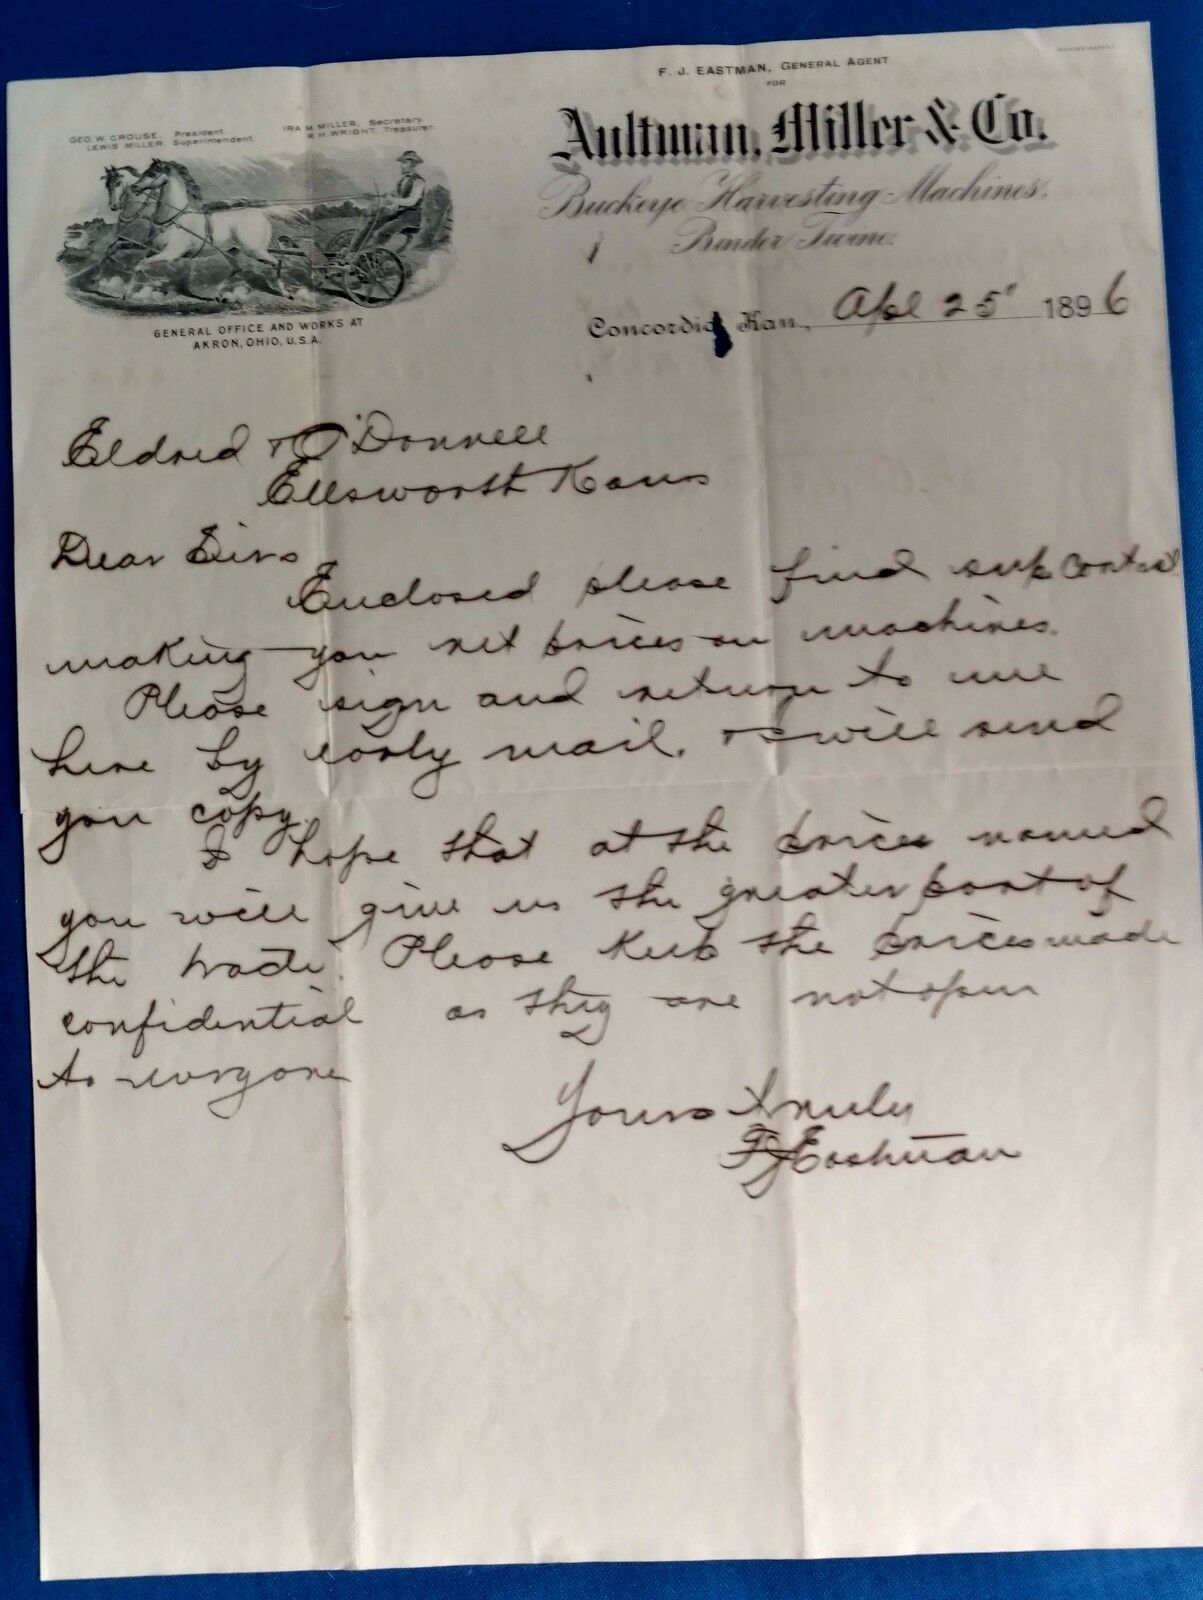 F. J. EASTMAN, GENERAL AGENT
FOR
Aultman, Miller & Co.
Buckeye Harvesting Machines,
Binder Twine.
GEO. W. CROUSE, President.
LEWIS MILLER, Superintendent.
IRA M. MILLER, Secretary.
R. H. WRIGHT, Treasurer.
GENERAL OFFICE AND WORKS AT
AKRON, OHIO, U.S.A.
Concordia, Kan., Apl 25" 1896
Eldred & O'Donnell
Ellsworth Kans
Dear Sirs
Enclosed please find sup contract
making you net prices on machines.
Please sign and return to me
here by early mail. & I will send
you copy.
I hope that at the prices named
you will give us the greater part of
the trade. Please keep the prices made
confidential as they are not open
to everyone
Yours truly
F J Eastman